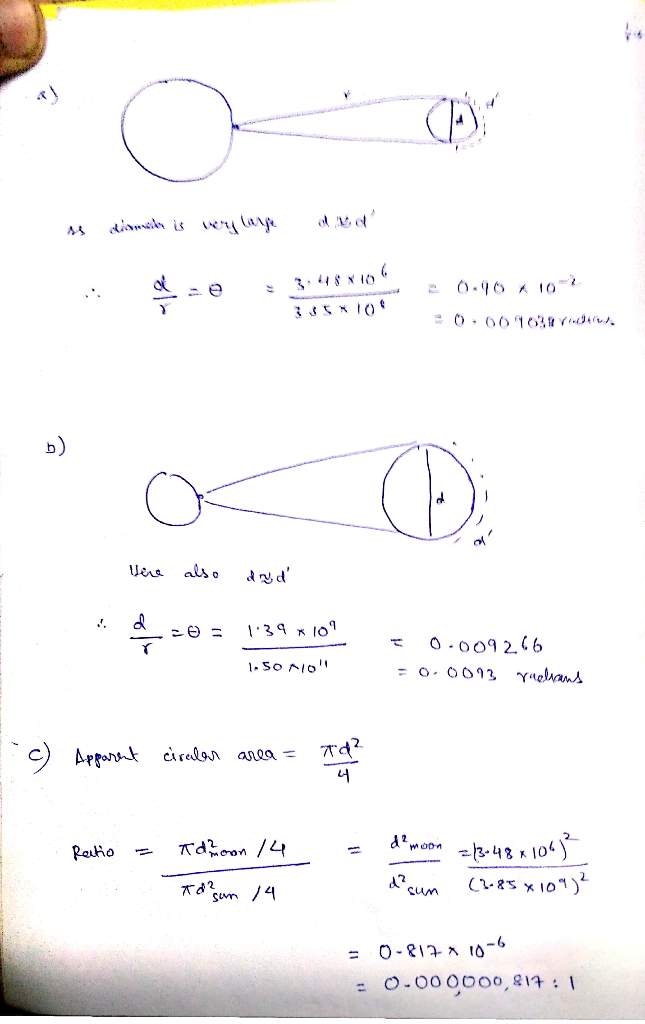 a)
r
d
d'
As diameter is very large d ≈ d'
∴ d/r = θ = 3.48 x 10^6 / 3.85 x 10^8 = 0.90 x 10^-2
= 0.009038 radians
b)
d
d'
Here also d ≈ d'
∴ d/r = θ = 1.39 x 10^9 / 1.50 x 10^11 = 0.009266
= 0.0093 radians
c) Apparent circular area = πd²/4
Ratio = πd²moon /4 / πd²sun /4 = d²moon / d²sun = (3.48 x 10^6)² / (3.85 x 10^9)²
= 0.817 x 10^-6
= 0.000000,817 : 1